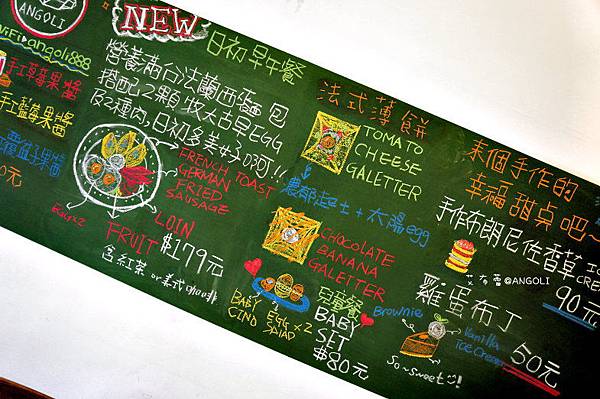 ANGOLI
WiFi→angoli888
手工草莓果醬
手工藍莓果醬
NEW
日初早午餐
營養滿分法蘭西麵包
搭配2顆牧大古早EGG
及2種肉,日初多美好啊!!
FRENCH TOAST
GERMAN
FRIED
SAUSAGE
EGGx2
LOIN
FRUIT
$179元
含紅茶 or 美式咖啡
法式薄餅
TOMATO
CHEESE
GALETTER
CHOCOLATE
BANANA
GALETTER
BABY EGG x2
SALAD
兒童餐
BABY
SET
$80元
來個手作的
幸福甜点吧~
手作布朗尼佐香草
90元
@ANGOLI
雞蛋布丁
50元
Brownie
Vanilla
Ice Cream
So~sweet